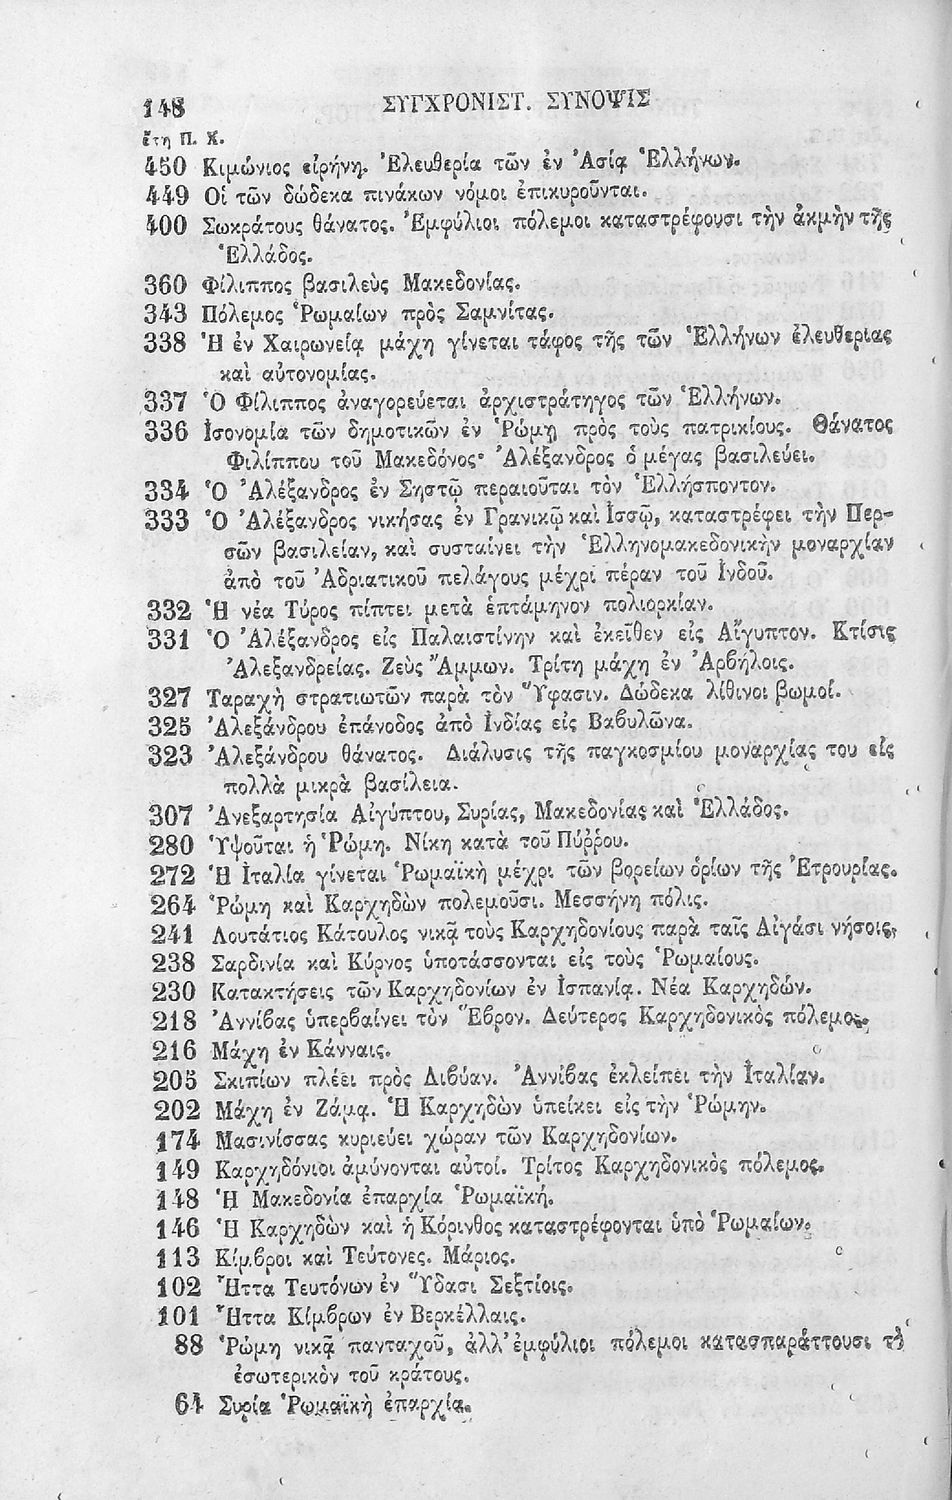 148 ΣΥΓΧΡΟΝΙΣΤ. ΣΥΝΟΨΙΣ
ἔτη Π. Χ.
450 Κιμώνιος εἰρήνη. Ἐλευθερία τῶν ἐν Ἀσίᾳ Ἑλλήνων.
449 Οἱ τῶν δώδεκα πινάκων νόμοι ἐπικυροῦνται.
400 Σωκράτους θάνατος. Ἐμφύλιοι πόλεμοι καταστρέφουσι τὴν ἀκμὴν τῆς
Ἑλλάδος.
360 Φίλιππος βασιλεὺς Μακεδονίας.
343 Πόλεμος Ῥωμαίων πρὸς Σαμνίτας.
338 Ἡ ἐν Χαιρωνείᾳ μάχη γίνεται τάφος τῆς τῶν Ἑλλήνων ἐλευθερίας
καὶ αὐτονομίας.
337 Ὁ Φίλιππος ἀναγορεύεται ἀρχιστράτηγος τῶν Ἑλλήνων.
336 Ἰσονομία τῶν δημοτικῶν ἐν Ῥώμῃ πρὸς τοὺς πατρικίους. Θάνατος
Φιλίππου τοῦ Μακεδόνος· Ἀλέξανδρος ὁ μέγας βασιλεύει.
334 Ὁ Ἀλέξανδρος ἐν Σηστῷ περαιοῦται τὸν Ἑλλήσποντον.
333 Ὁ Ἀλέξανδρος νικήσας ἐν Γρανικῷ καὶ Ἰσσῷ, καταστρέφει τὴν Περ-
σῶν βασιλείαν, καὶ συσταίνει τὴν Ἑλληνομακεδονικὴν μοναρχίαν
ἀπὸ τοῦ Ἀδριατικοῦ πελάγους μέχρι πέραν τοῦ Ἰνδοῦ.
332 Ἡ νέα Τύρος πίπτει μετὰ ἑπτάμηνον πολιορκίαν.
331 Ὁ Ἀλέξανδρος εἰς Παλαιστίνην καὶ ἐκεῖθεν εἰς Αἴγυπτον. Κτίσις
Ἀλεξανδρείας. Ζεὺς Ἄμμων. Τρίτη μάχη ἐν Ἀρβήλοις.
327 Ταραχὴ στρατιωτῶν παρὰ τὸν Ὕφασιν. Δώδεκα λίθινοι βωμοί.
325 Ἀλεξάνδρου ἐπάνοδος ἀπὸ Ἰνδίας εἰς Βαβυλῶνα.
323 Ἀλεξάνδρου θάνατος. Διάλυσις τῆς παγκοσμίου μοναρχίας του εἰς
πολλὰ μικρὰ βασίλεια.
307 Ἀνεξαρτησία Αἰγύπτου, Συρίας, Μακεδονίας καὶ Ἑλλάδος.
280 Ὑψοῦται ἡ Ῥώμη. Νίκη κατὰ τοῦ Πύῤῥου.
272 Ἡ Ἰταλία γίνεται Ῥωμαϊκὴ μέχρι τῶν βορείων ὁρίων τῆς Ἐτρουρίας.
264 Ῥώμη καὶ Καρχηδὼν πολεμοῦσι. Μεσσήνη πόλις.
241 Λουτάτιος Κάτουλος νικᾷ τοὺς Καρχηδονίους παρὰ ταῖς Αἰγάσι νήσοις.
238 Σαρδινία καὶ Κύρνος ὑποτάσσονται εἰς τοὺς Ῥωμαίους.
230 Κατακτήσεις τῶν Καρχηδονίων ἐν Ἰσπανίᾳ. Νέα Καρχηδών.
218 Ἀννίβας ὑπερβαίνει τὸν Ἕβρον. Δεύτερος Καρχηδονικὸς πόλεμος.
216 Μάχη ἐν Κάνναις.
205 Σκιπίων πλέει πρὸς Λιβύαν. Ἀννίβας ἐκλείπει τὴν Ἰταλίαν.
202 Μάχη ἐν Ζάμᾳ. Ἡ Καρχηδὼν ὑπείκει εἰς τὴν Ῥώμην.
174 Μασινίσσας κυριεύει χώραν τῶν Καρχηδονίων.
149 Καρχηδόνιοι ἀμύνονται αὐτοί. Τρίτος Καρχηδονικὸς πόλεμος.
148 Ἡ Μακεδονία ἐπαρχία Ῥωμαϊκή.
146 Ἡ Καρχηδὼν καὶ ἡ Κόρινθος καταστρέφονται ὑπὸ Ῥωμαίων.
113 Κίμβροι καὶ Τεύτονες. Μάριος.
102 Ἧττα Τευτόνων ἐν Ὕδασι Σεξτίοις.
101 Ἧττα Κίμβρων ἐν Βερκέλλαις.
88 Ῥώμη νικᾷ πανταχοῦ, ἀλλ' ἐμφύλιοι πόλεμοι κατασπαράττουσι τὸ
ἐσωτερικὸν τοῦ κράτους.
64 Συρία Ῥωμαϊκὴ ἐπαρχία.